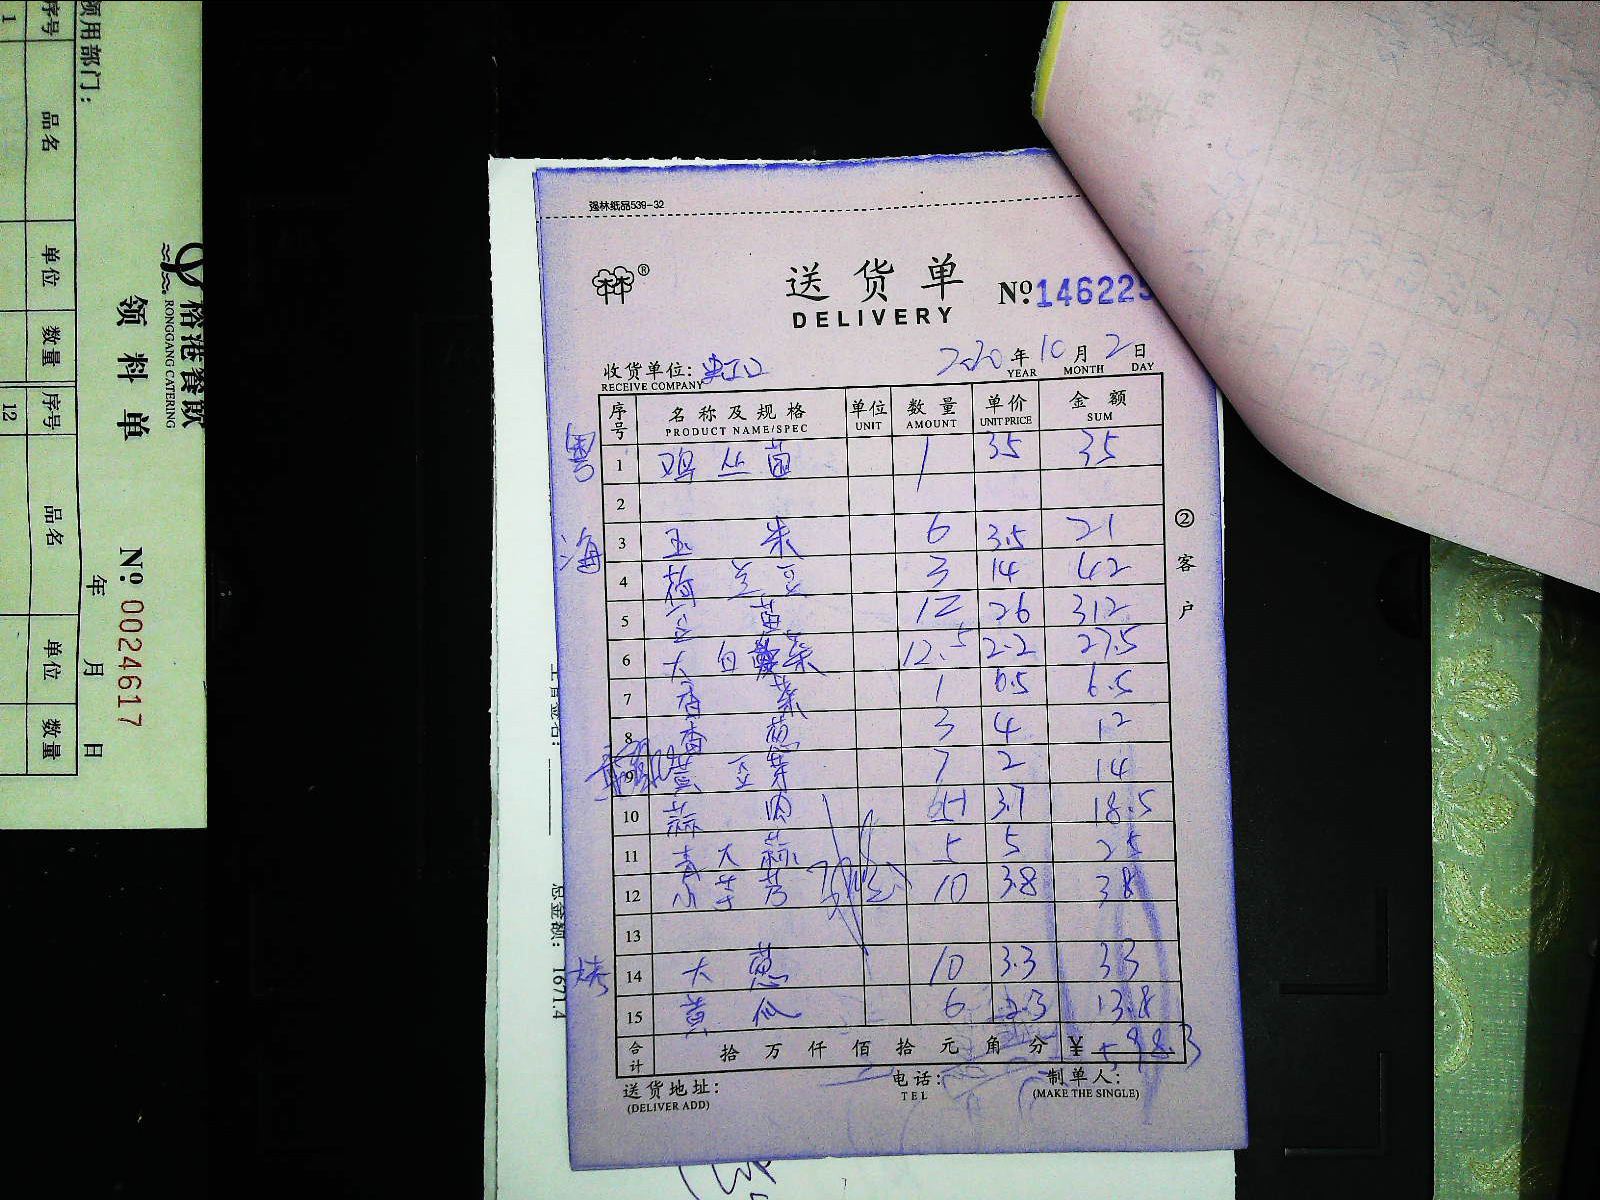 强林纸品539-32
送货单
DELIVERY
№146225
2020年10月2日
YEAR MONTH DAY
收货单位: 虹口
RECEIVE COMPANY
序号 名称及规格 单位 数量 单价 金额
PRODUCT NAME/SPEC UNIT AMOUNT UNIT PRICE SUM
粤 1 鸡丛菌 1 35 35
2
海 3 玉米 6 3.5 21
4 荷兰豆 3 14 42
5 豆苗 12 26 312
6 大白菜 12.5 2.2 27.5
7 香菜 1 6.5 6.5
8 香葱 3 4 12
9 黄豆芽 7 2 14
10 蒜肉 5 3.7 18.5
11 青大蒜 5 5 25
12 小芋艿 10 3.8 38
13
烤 14 大葱 10 3.3 33
15 黄瓜 6 2.3 13.8
合计 拾万仟佰拾元角分 ¥ 598.3
送货地址:
(DELIVER ADD)
电话:
TEL
制单人:
(MAKE THE SINGLE)
②客户
总金额: 1671.4
裕港餐饮
RONGGANG CATERING
领料单
№ 0024617
领用部门:
年 月 日
序号 品名 单位 数量 序号 品名 单位 数量
1 12